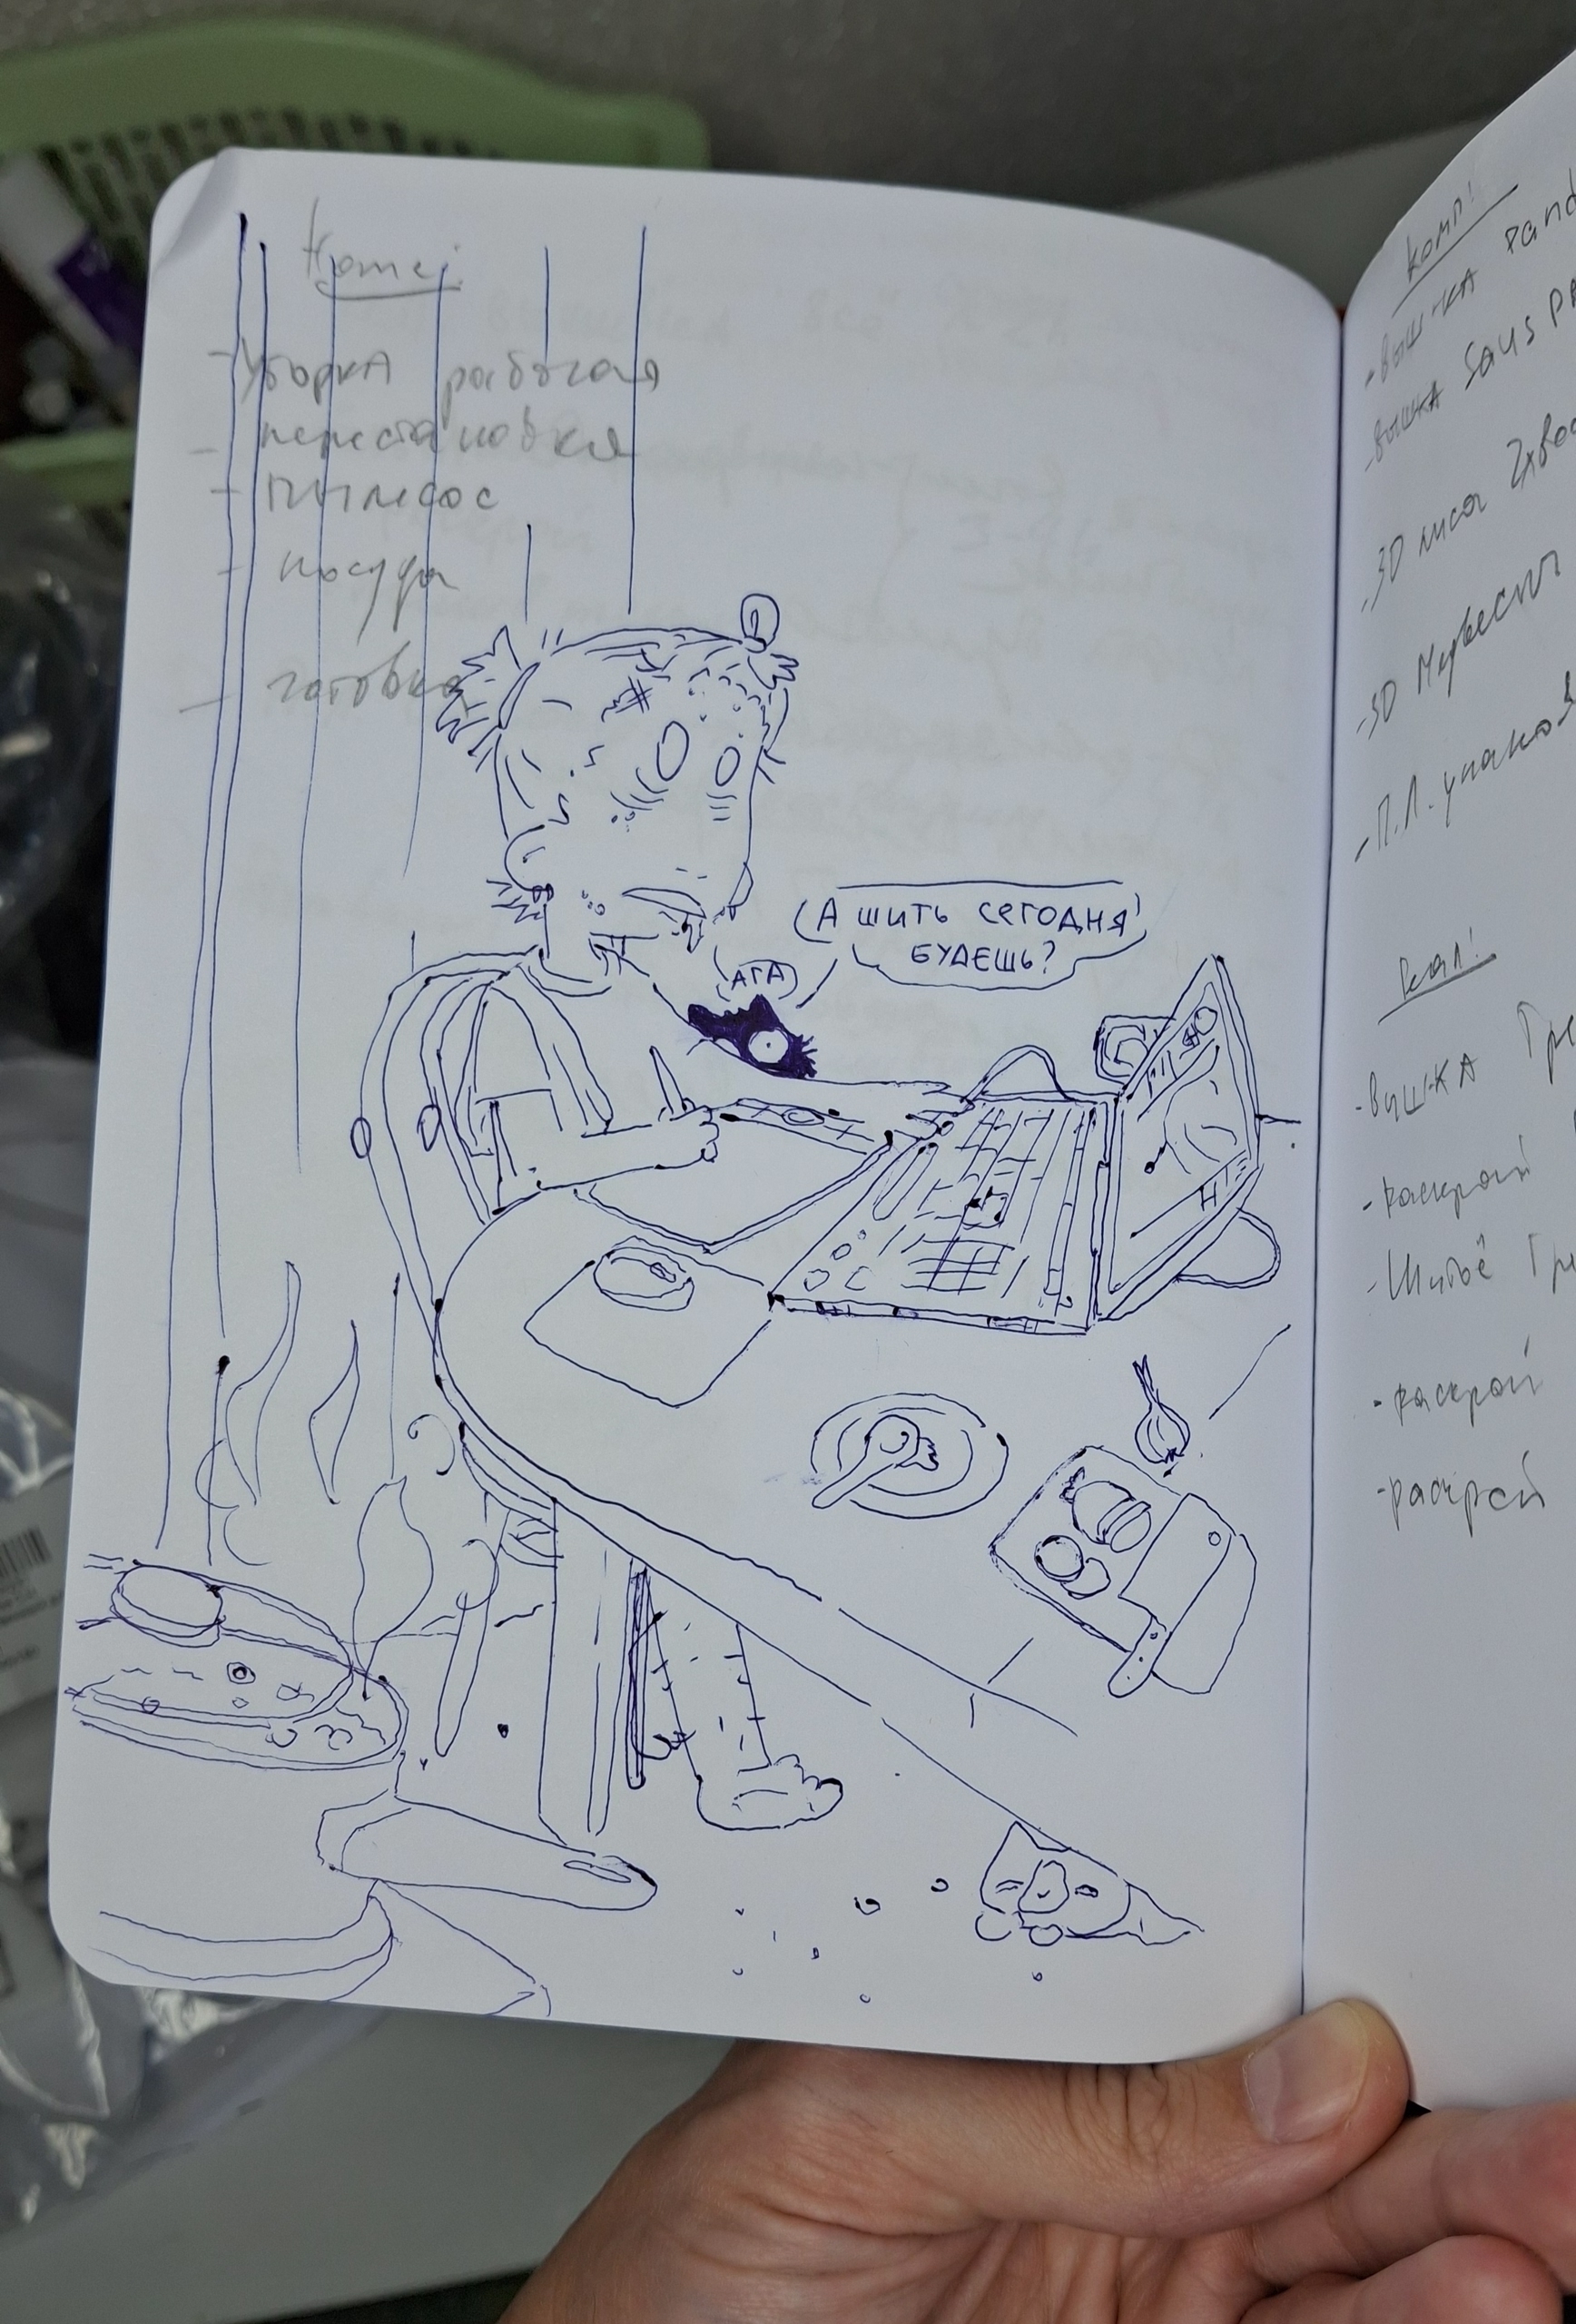 Home:
- Уборка рабочая
- перестановка
- пылесос
- посуда
- готовка
А ШИТЬ СЕГОДНЯ
БУДЕШЬ?
АГА
комп!
- выш-ка Pand
- вышка
- 3D лиса
- 3D
- П.Л. упаков
кал!
- вышка Гре
- раскрой
- Шитьё Гре
- раскрой
- раскрой